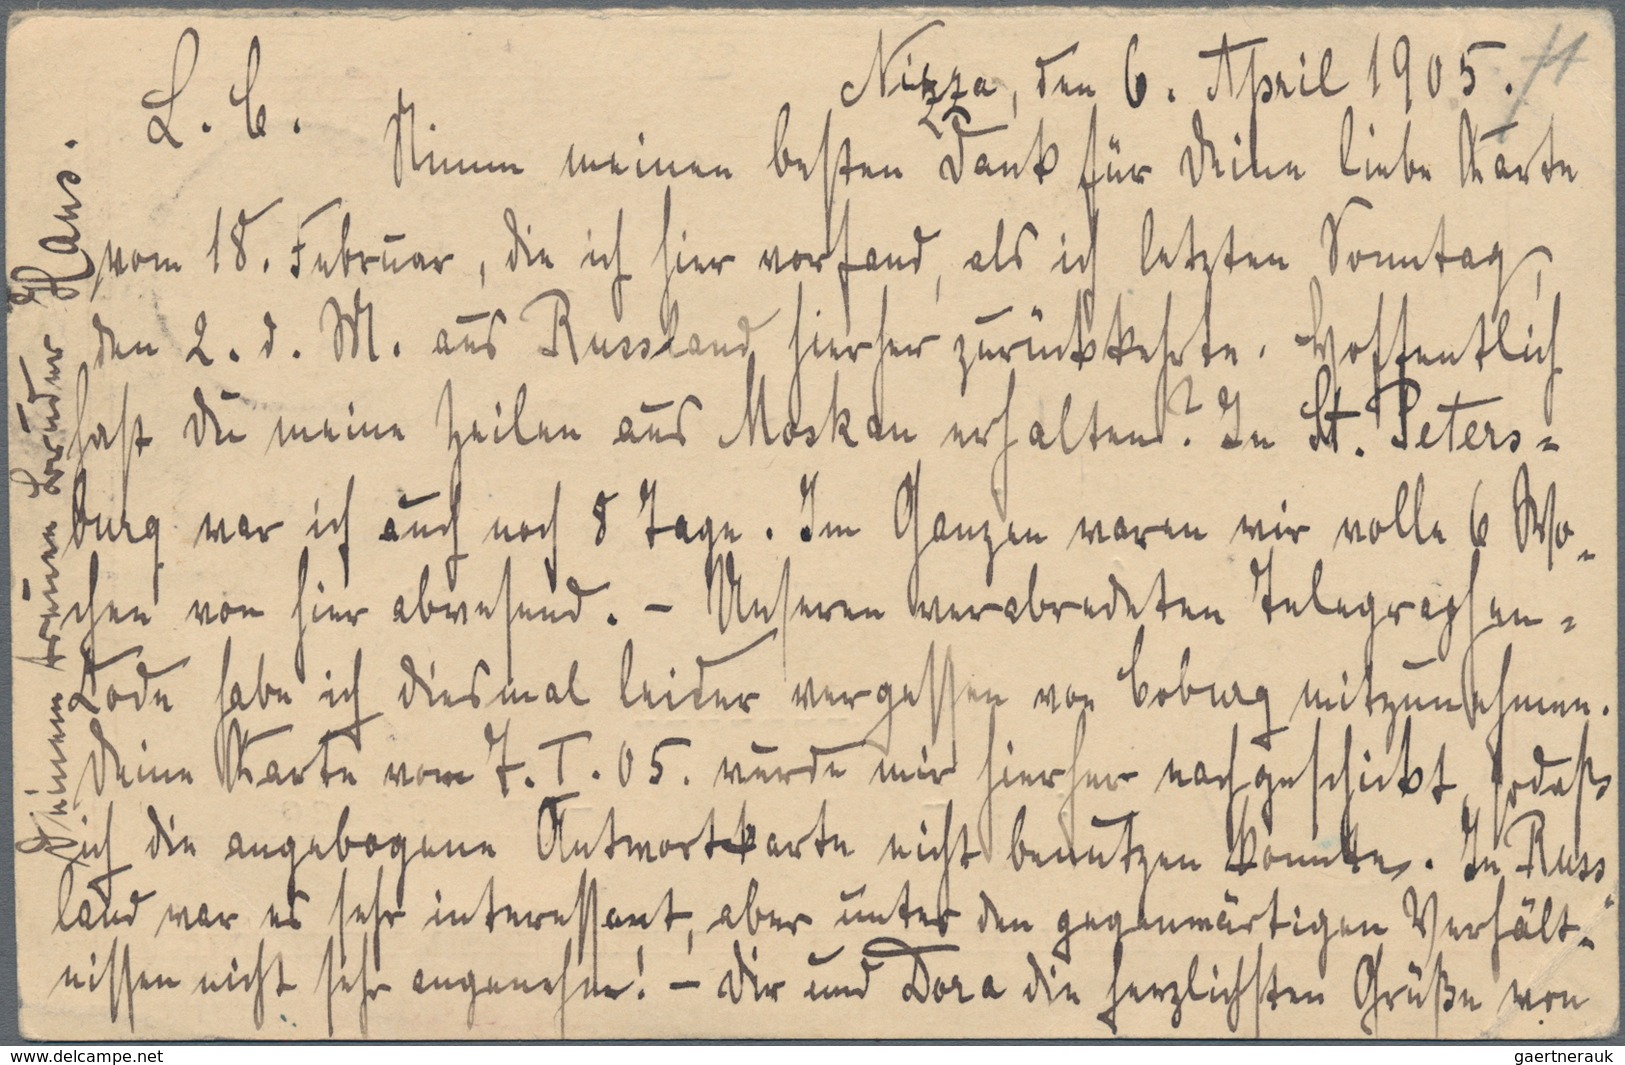 Nizza, den 6. April 1905.
L. C.
Nimm meinen besten Dank für Deine liebe Karte
vom 18. Februar, die ich hier vorfand, als ich letzten Sonntag,
den 2. d. M. aus Russland hierher zurückkehrte. Hoffentlich
hast Du meine Zeilen aus Moskau erhalten? In St. Peters=
burg war ich auch noch 8 Tage. Im Ganzen waren wir volle 6 Wo=
chen von hier abwesend. – Unseren verabredeten Telegraphen=
Code habe ich diesmal leider vergessen von Coburg mitzunehmen.
Deine Karte vom 7. I. 05. wurde mir hierher nachgeschickt, sodaß
ich die angebogene Antwortkarte nicht benutzen konnte. In Russ=
land war es sehr interessant, aber unter den gegenwärtigen Verhält=
nissen nicht sehr angenehm! – Dir und Dora die herzlichsten Grüße von
Deinem treuen Bruder Hans.
www.delcampe.net
gaertnerauk